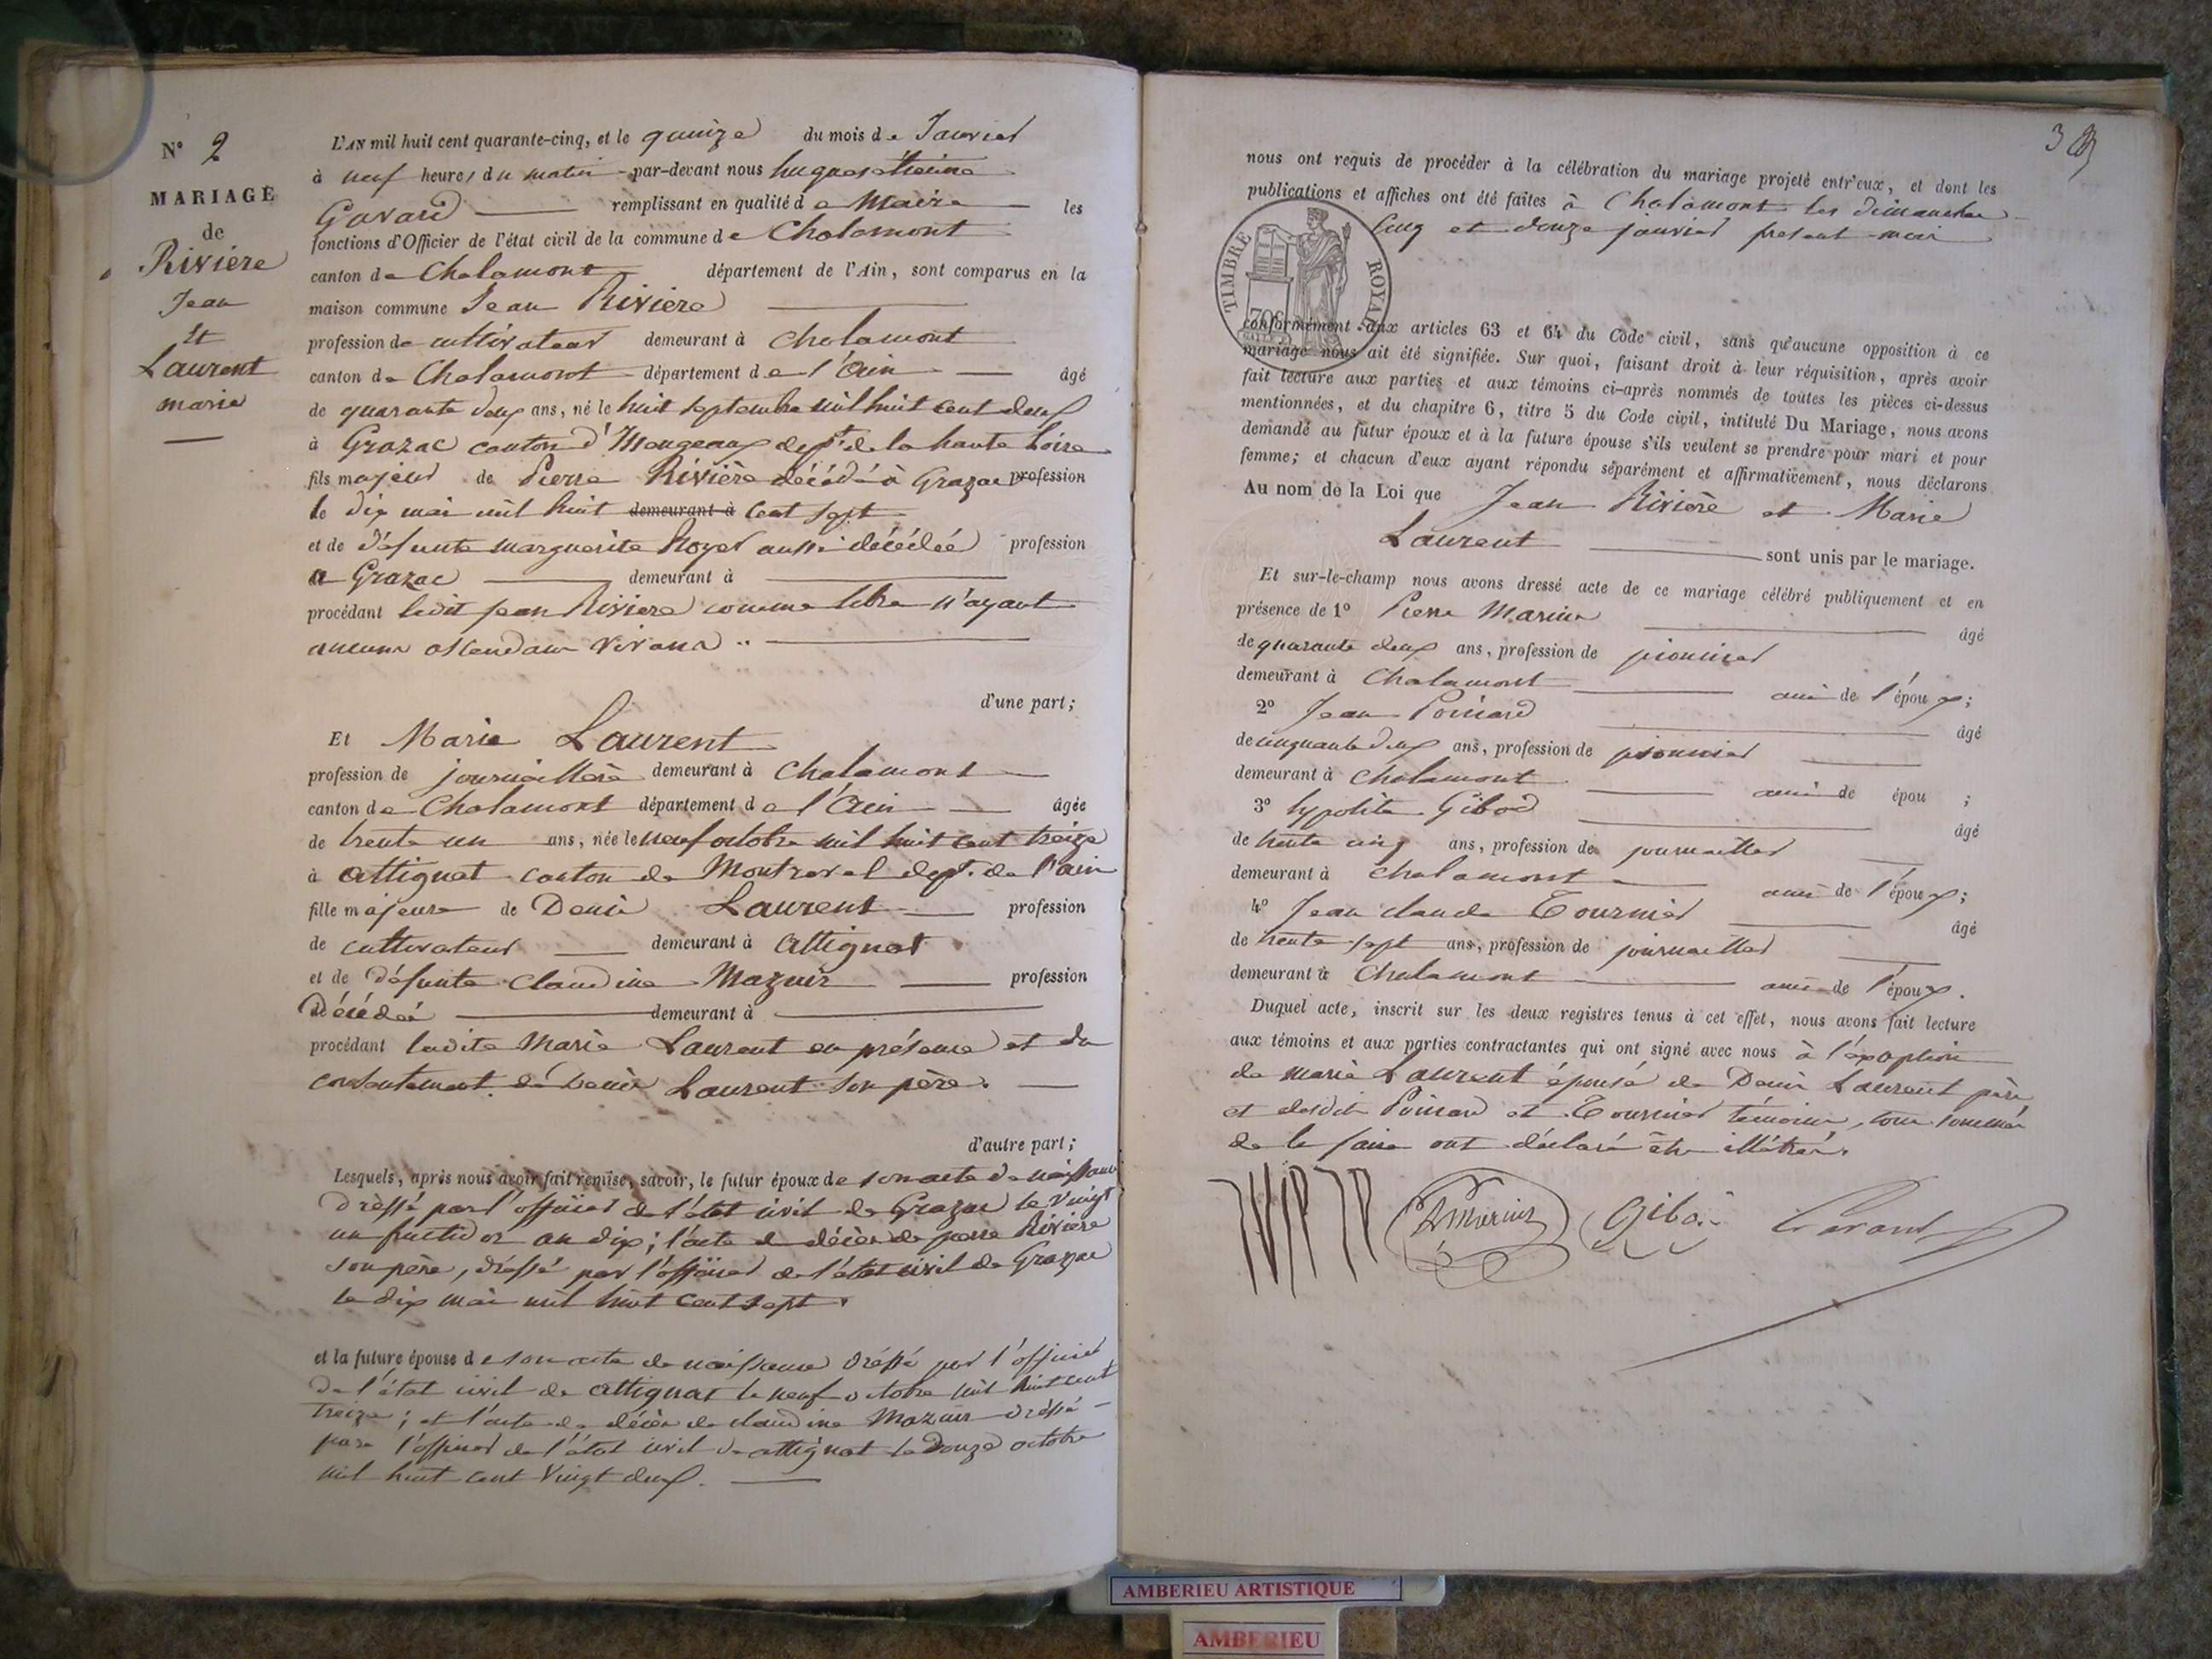 N° 2
MARIAGE
de
Rivière
Jean
Et
Laurent
marie
L'AN mil huit cent quarante-cinq, et le quinze du mois de Janvier
à neuf heures du matin par-devant nous hugues étienne
Gavand remplissant en qualité de Maire les
fonctions d'Officier de l'état civil de la commune de Chalamont
canton de Chalamont département de l'Ain, sont comparus en la
maison commune Jean Rivière
profession de cultivateur demeurant à Chalamont
canton de Chalamont département de l'Ain âgé
de quarante deux ans, né le huit septembre mil huit cent deux
à Grazac canton d' dept. de la haute Loire
fils majeur de Pierre Rivière décédé à Grazac profession
le dix mai mil huit demeurant à cent sept
et de défunte marguerite aussi décédée profession
a Grazac demeurant à
procédant ledit jean Rivière comme libre n'ayant
aucuns ascendans vivans
d'une part;
Et Marie Laurent
profession de journaillère demeurant à Chalamont
canton de Chalamont département de l'Ain âgée
de trente un ans, née le neuf octobre mil huit cent treize
à attignat canton de Montrevel dept. de l'ain
fille majeure de Denis Laurent profession
de cultivateur demeurant à attignat
et de défunte Claudine Mazuir profession
Décédée demeurant à
procédant ladite Marie Laurent en présence et du
consentement de Denis Laurent son père.
d'autre part;
Lesquels, après nous avoir fait remise, savoir, le futur époux de son acte de naissance
dréssé par l'officier de l'état civil de Grazac le vingt
un fructidor an dix; l'acte de décès de pierre Rivière
son père, dréssé par l'officier de l'état civil de Grazac
le dix mai mil huit cent sept.
et la future épouse de son acte de naissance dréssé par l'officier
de l'état civil de attignat le neuf octobre mil huit cent
treize; et l'acte de décès de claudine Mazuir dréssé
par l'officier de l'état civil de attignat le douze octobre
mil huit cent vingt deux.
3
nous ont requis de procéder à la célébration du mariage projeté entr'eux, et dont les
publications et affiches ont été faites à Chalamont les dimanches
cinq et douze janvier present mois
TIMBRE ROYAL
conformément aux articles 63 et 64 du Code civil, sans qu'aucune opposition à ce
mariage nous ait été signifiée. Sur quoi, faisant droit à leur réquisition, après avoir
fait lecture aux parties et aux témoins ci-après nommés de toutes les pièces ci-dessus
mentionnées, et du chapitre 6, titre 5 du Code civil, intitulé Du Mariage, nous avons
demandé au futur époux et à la future épouse s'ils veulent se prendre pour mari et pour
femme; et chacun d'eux ayant répondu séparément et affirmativement, nous déclarons
Au nom de la Loi que Jean Rivière et Marie
Laurent sont unis par le mariage.
Et sur-le-champ nous avons dressé acte de ce mariage célébré publiquement et en
présence de 1° Pierre Marin âgé
de quarante deux ans, profession de pionnier
demeurant à Chalamont ami de l'époux;
2° Jean Poinard âgé
de cinquante deux ans, profession de pionnier
demeurant à Chalamont ami de épou ;
3° hypolite Gibod âgé
de trente cinq ans, profession de journaillier
demeurant à chalamont ami de l'époux;
4° Jean claude Tournier âgé
de trente sept ans, profession de journaillier
demeurant à Chalamont ami de l'époux.
Duquel acte, inscrit sur les deux registres tenus à cet effet, nous avons fait lecture
aux témoins et aux parties contractantes qui ont signé avec nous à l'exception
de marie Laurent épouse de Denis Laurent père
et desdits Poinard et Tournier témoins, tous
de le faire ont déclaré être illétrés.
Gibo
Gavand
AMBERIEU ARTISTIQUE
AMBERIEU